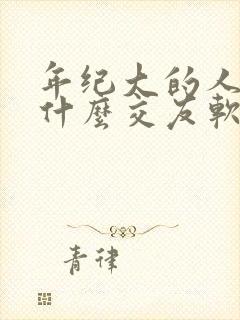 年纪大的人
什麼交友軟
青律